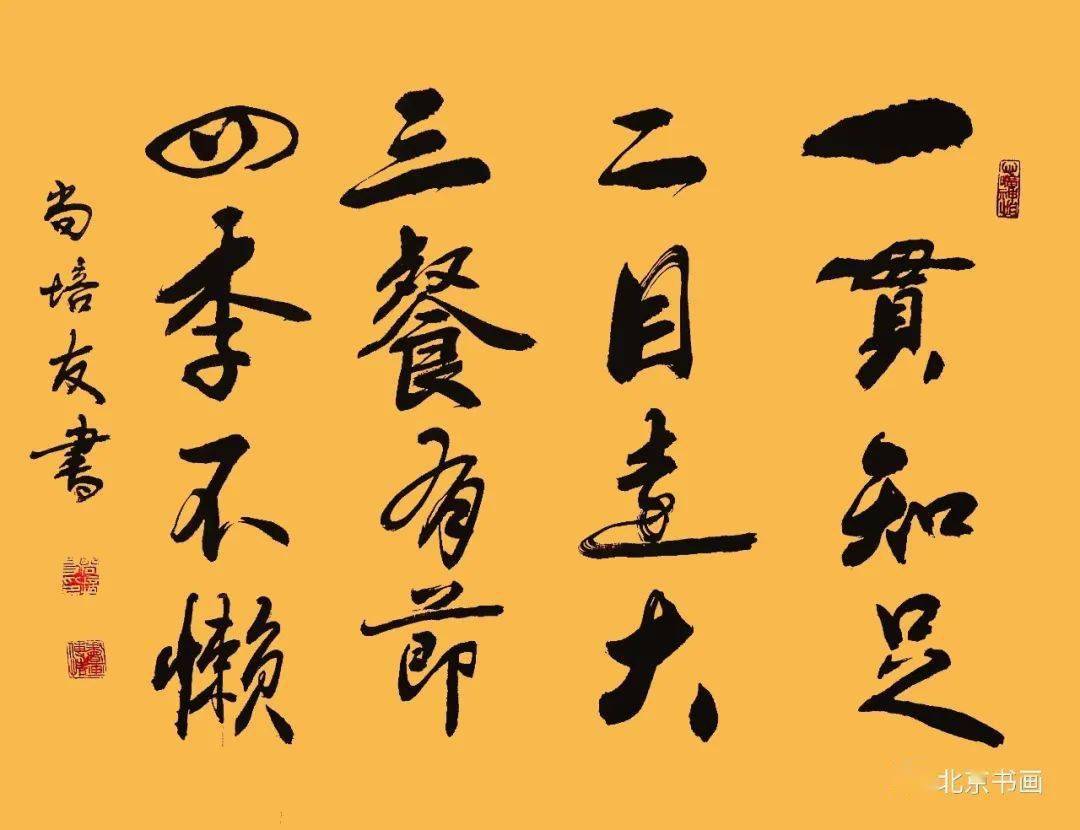 一貫知足
二目遠大
三餐有節
四季不懶
尚培友書
北京书画